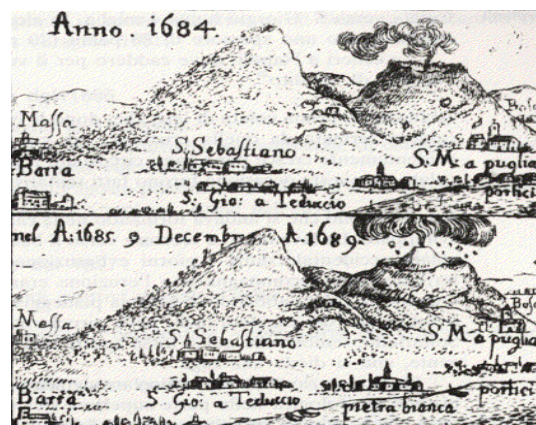 Anno. 1684.
Massa
S. Sebastiano
S. M: a puglia
Barra
S. Gio: a Teduccio
portici
nel A. 1685. 9. Decembr. A. 1689.
Massa
S. Sebastiano
S. M. a puglia
Barra
S. Gio: a Teduccio
pietra bianca
portici